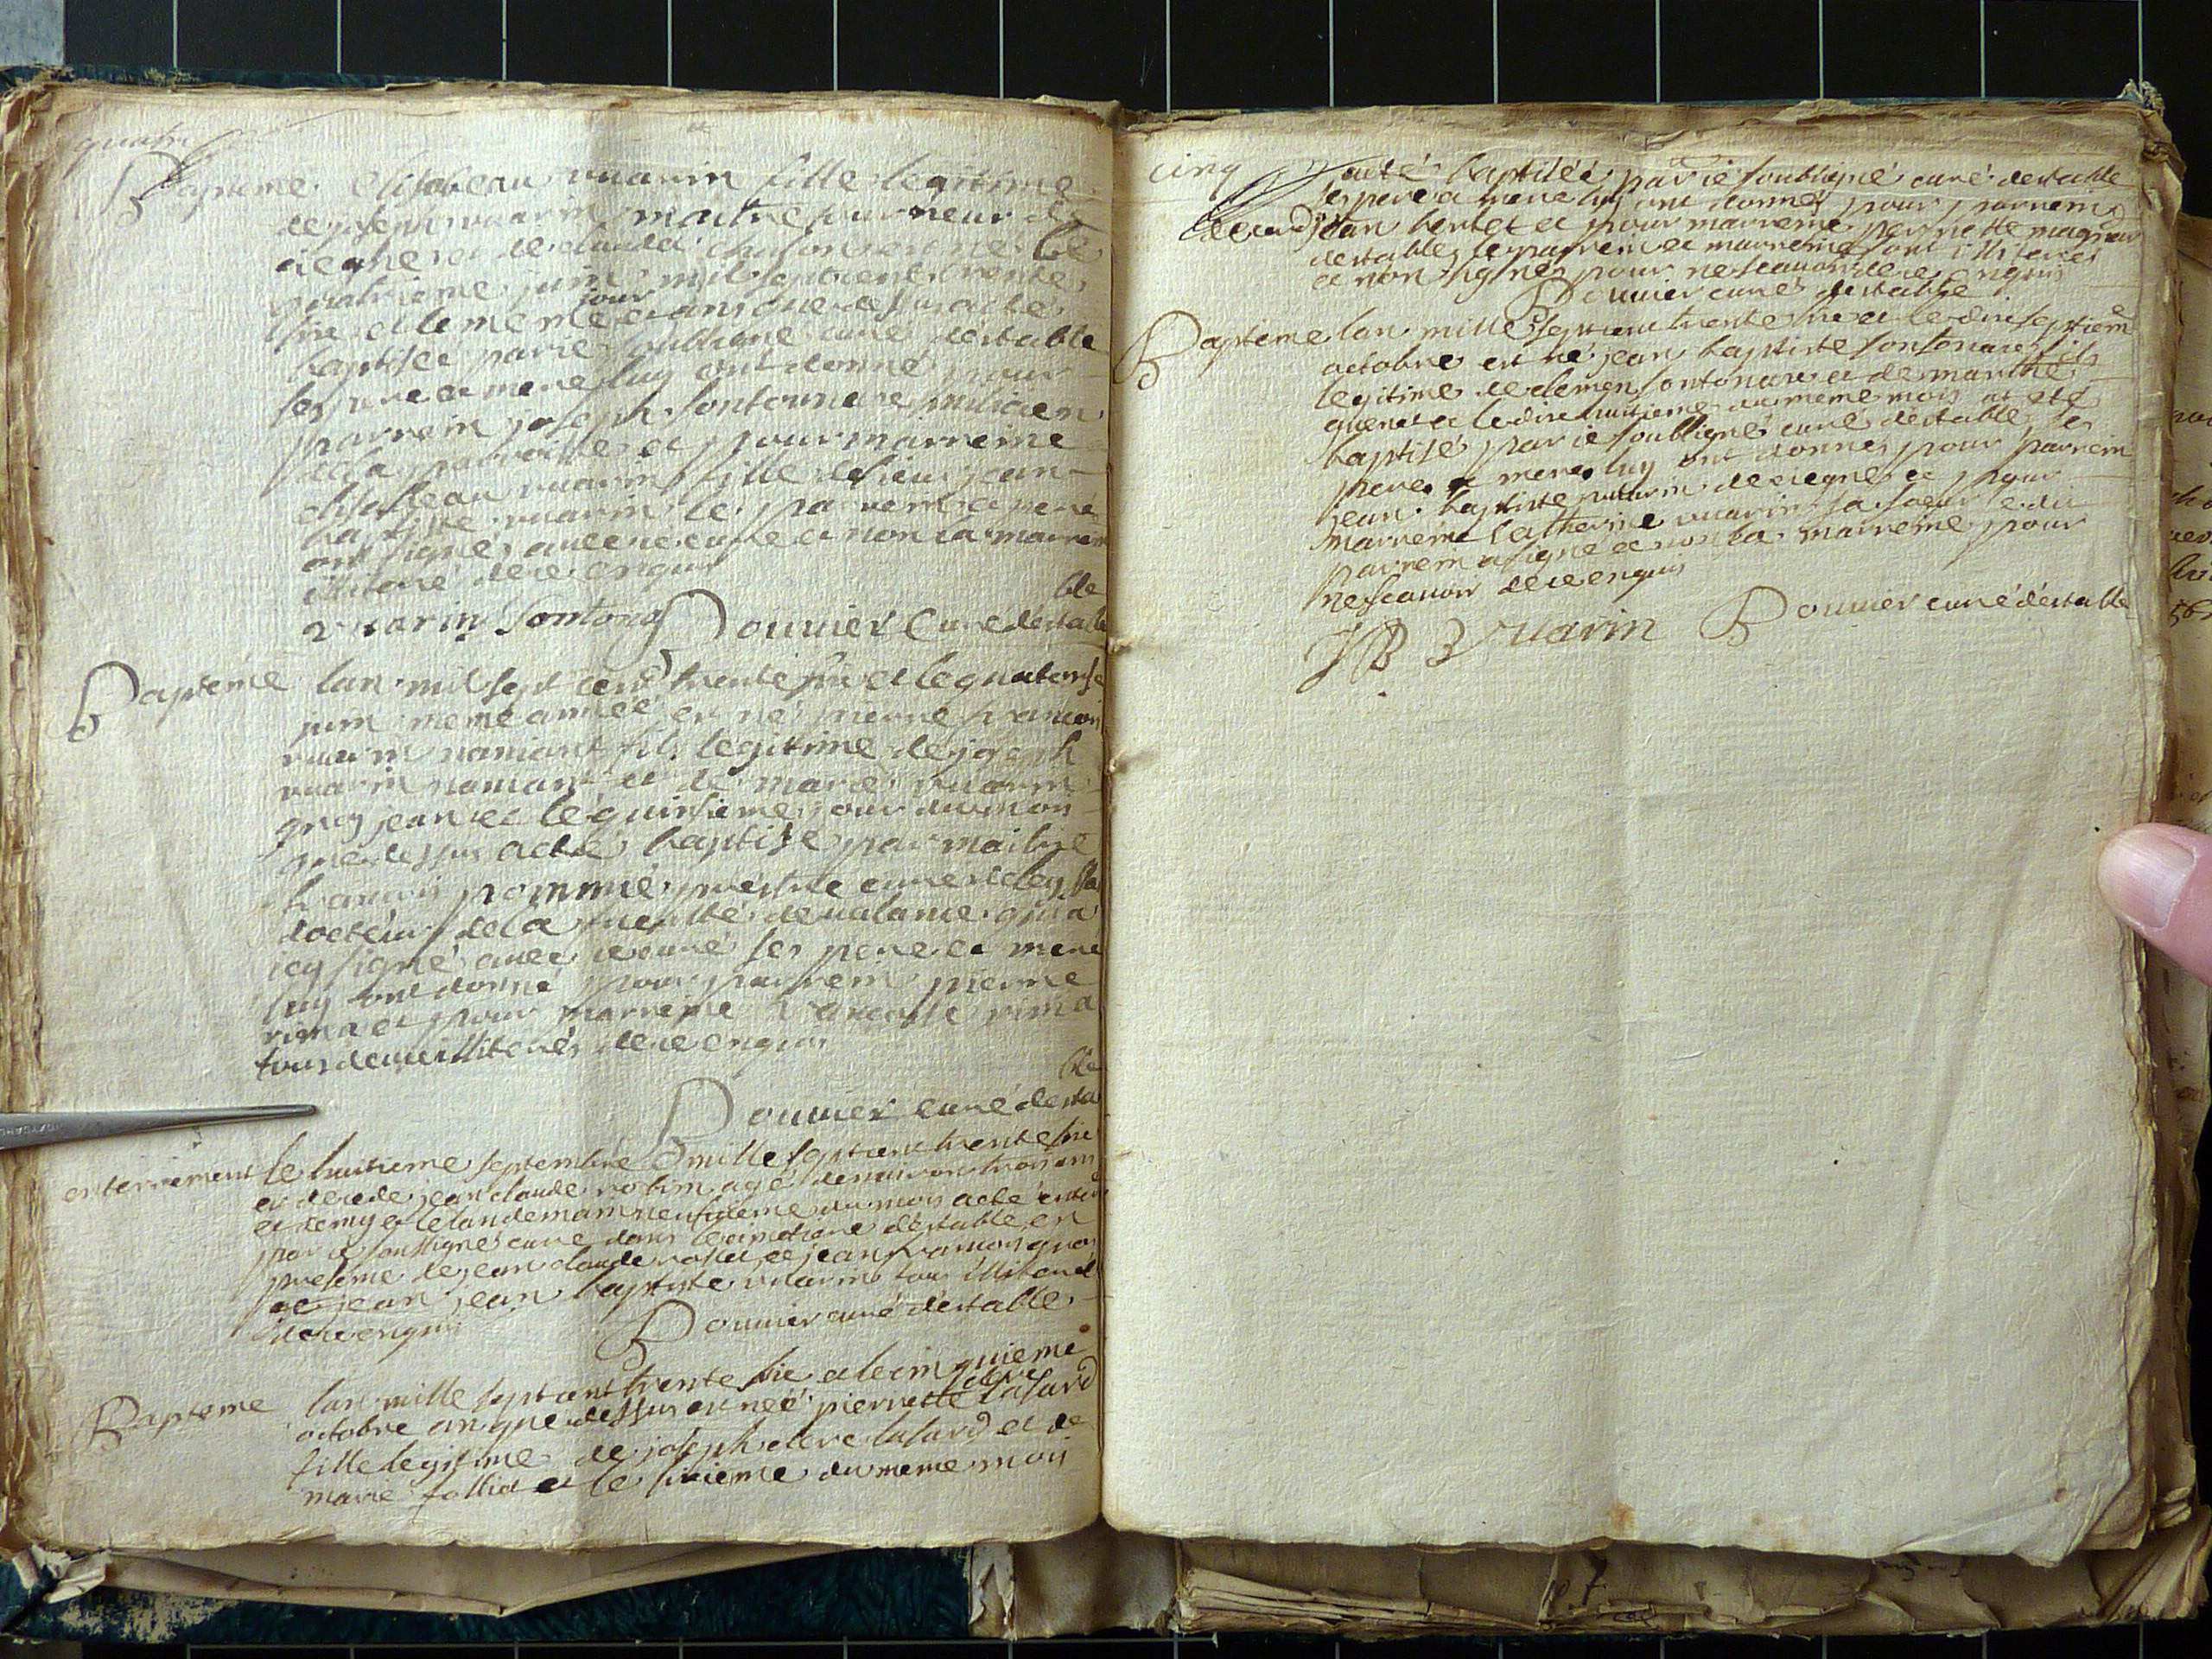 quatre
Bapteme elisabeau vuarin fille legitime
de joseph vuarin maitre fourneur de
est née le
quatrieme juin mil sept cent trente
six et le meme jour et an que dessus a été
baptisée par ie soubsigné curé destable
ses pere et mere luy ont donné pour
parrein joseph sontonnaxe milicien
de la parroisse et pour marreine
elisabeau vuarin fille de jean
baptiste vuarin le parrein et pere
ont signé avec ce curé et non la marreine
illiteré de ce enquis
vuarin sontonax Bouuier Curé destable
Bapteme lan mil sept cent trente six et le quatorse
juin meme année est né pierre francois
vuarin naniant fils legitime de joseph
vuarin naniant et de marie vuarin
gros jean et le quinsieme jour du mois
que dessus a eté baptisé par maitre
francois pommié prestre curé de
docteur de la faculté de valance qui a
icy signé avec ce curé ses pere et mere
luy ont donné pour parrein pierre
rima et pour marreine rima
tous deux illiterés de ce enquis
Bouuier curé destable
enterrement le huitieme septembre mille sept cent trente six
et decede jean claude robin agé denuiron trois ans
et demy et le landemain neufuieme du mois a eté enterré
par ie soubsigné curé dans le cimetiere destable en
presence de jean claude rosset et jean francois gros
jean et jean baptiste vuarin tous illiterés
de ce enquis Bouuier curé destable
Bapteme lan mille sept cent trente six et le cinquieme
octobre an que dessus est née pierrette clere lasard
fille legitime de joseph clere lasard et de
marie follict et le sixieme du meme mois
cinq a eté baptisée par ie soubsigné curé destable
ses pere et mere luy ont donné pour parrein
jean bertet et pour marreine pernette magnin
destable le parrein et marreine sont illiterés
et non signés pour ne scauoir de ce enquis
Bouuier curé destable
Bapteme lan mille sept cent trente six et le dixseptieme
octobre est né jean baptiste sontonaxe fils
legitime de clemen sontonaxe et de marthe
quenet et le dixhuitieme du meme mois at eté
baptisé par ie soubsigné curé destable ses
pere et mere luy ont donnés pour parrein
jean baptiste vuarin de ciegne et pour
marreine catherine vuarin sa soeur ledit
parrein a signé et non la marreine pour
ne scauoir de ce enquis
JB Vuarin Bouuier curé destable